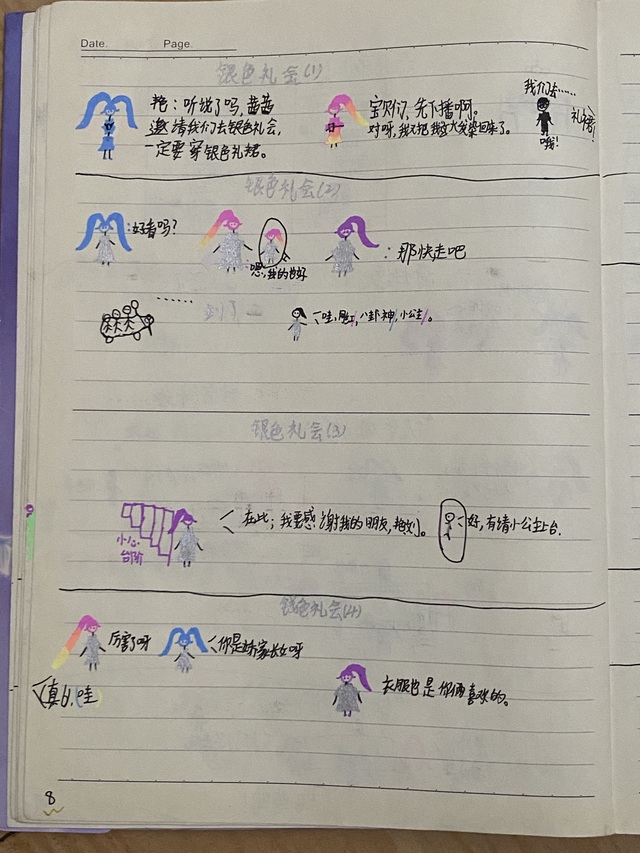 Date.    Page.
银色礼会(1)
艳：听说了吗，茜茜
邀请我们去银色礼会，
一定要穿银色礼裙。
宝贝们，先下播啊。
对呀，我又把我这大发染回来了。
我们去……
哦！
礼裙！
银色礼会(2)
：好看吗？
嗯，我的也好
：那快走吧
……
到了
哇，网红，八卦神，小公主。
银色礼会(3)
小心
台阶
在此；我要感谢我的朋友，艳刘。
好，有请小公主上台．
银色礼会(4)
厉害了呀
你是娇家长女呀
真的，哇
衣服也是你俩喜欢的。
8